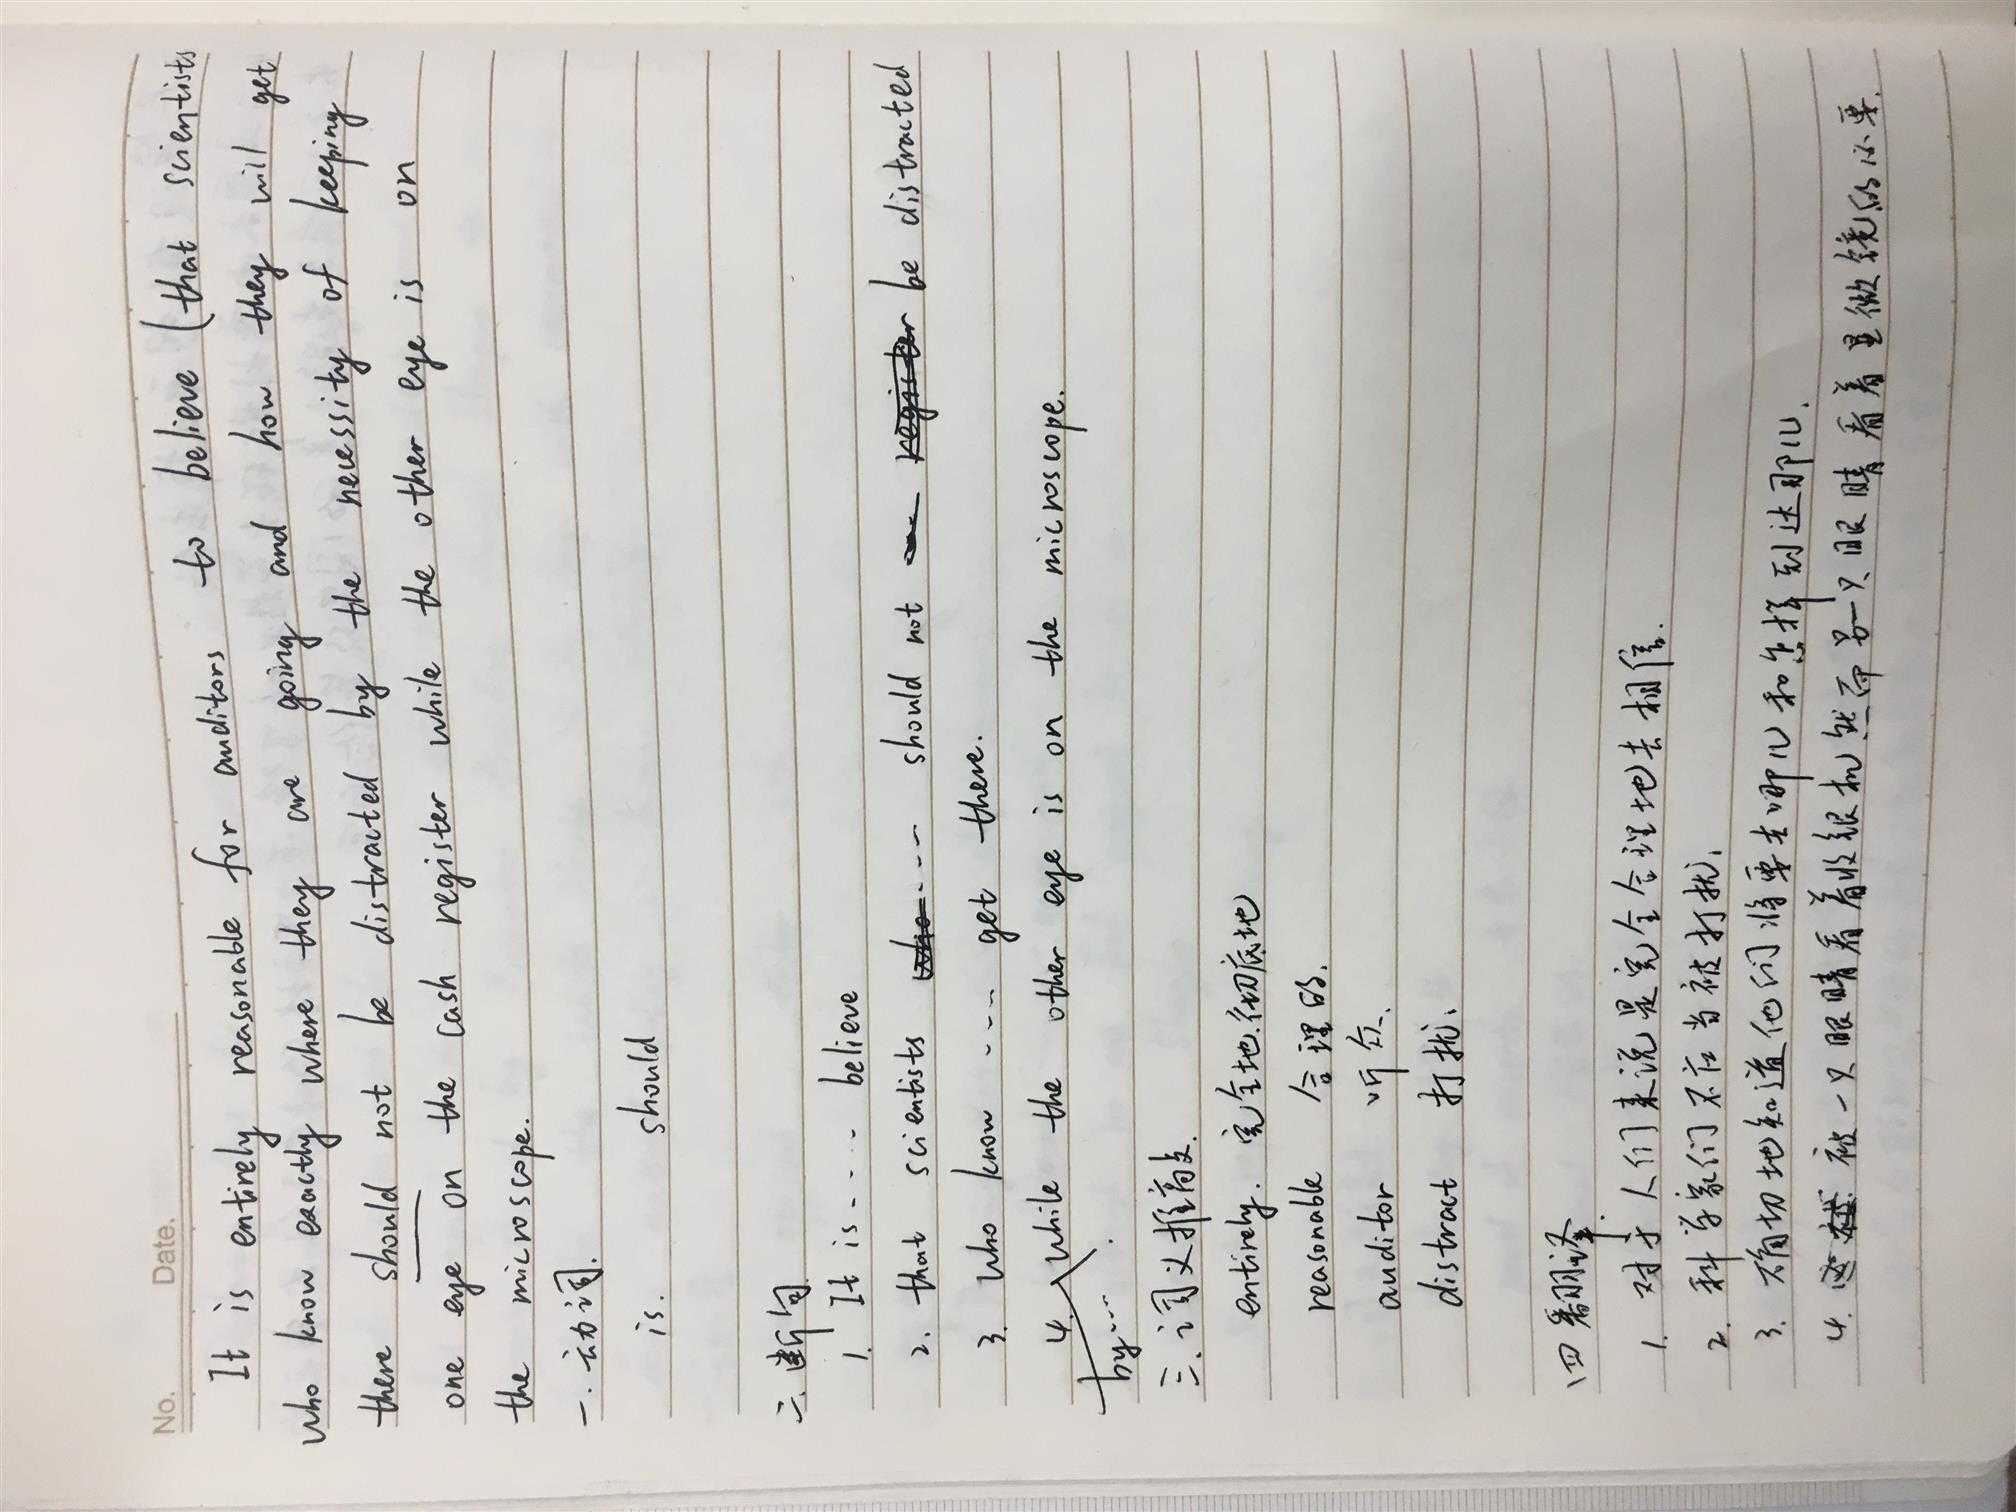 No.
Date.
It is entirely reasonable for auditors to believe (that scientists
who know exactly where they are going and how they will get
there should not be distracted by the necessity of keeping
one eye on the cash register while the other eye is on
the microscope.
一. 动词.
is. should
二. 断句
1. It is .... believe
2. that scientists ---- should not be distracted
3. who know ---- get there.
4. while the other eye is on the microscope.
by....
三. 词义推敲.
entirely. 完全地. 彻底地
reasonable 合理的.
auditor 听众.
distract 打扰.
四 翻译.
1. 对于人们来说是完全合理地去相信.
2. 科学家们不应当被打扰.
3. 确切地知道他们将要去哪儿和怎样到达那儿.
4. 被一只眼睛看着收银机然而另一只眼睛看着显微镜的必要.